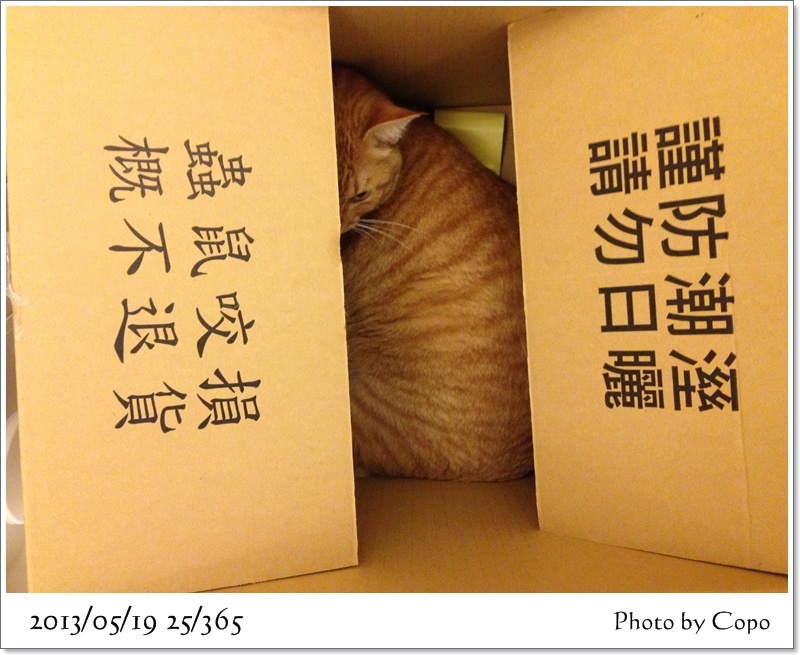 謹防潮溼
請勿日曬
蟲鼠咬損
概不退貨
2013/05/19 25/365
Photo by Copo